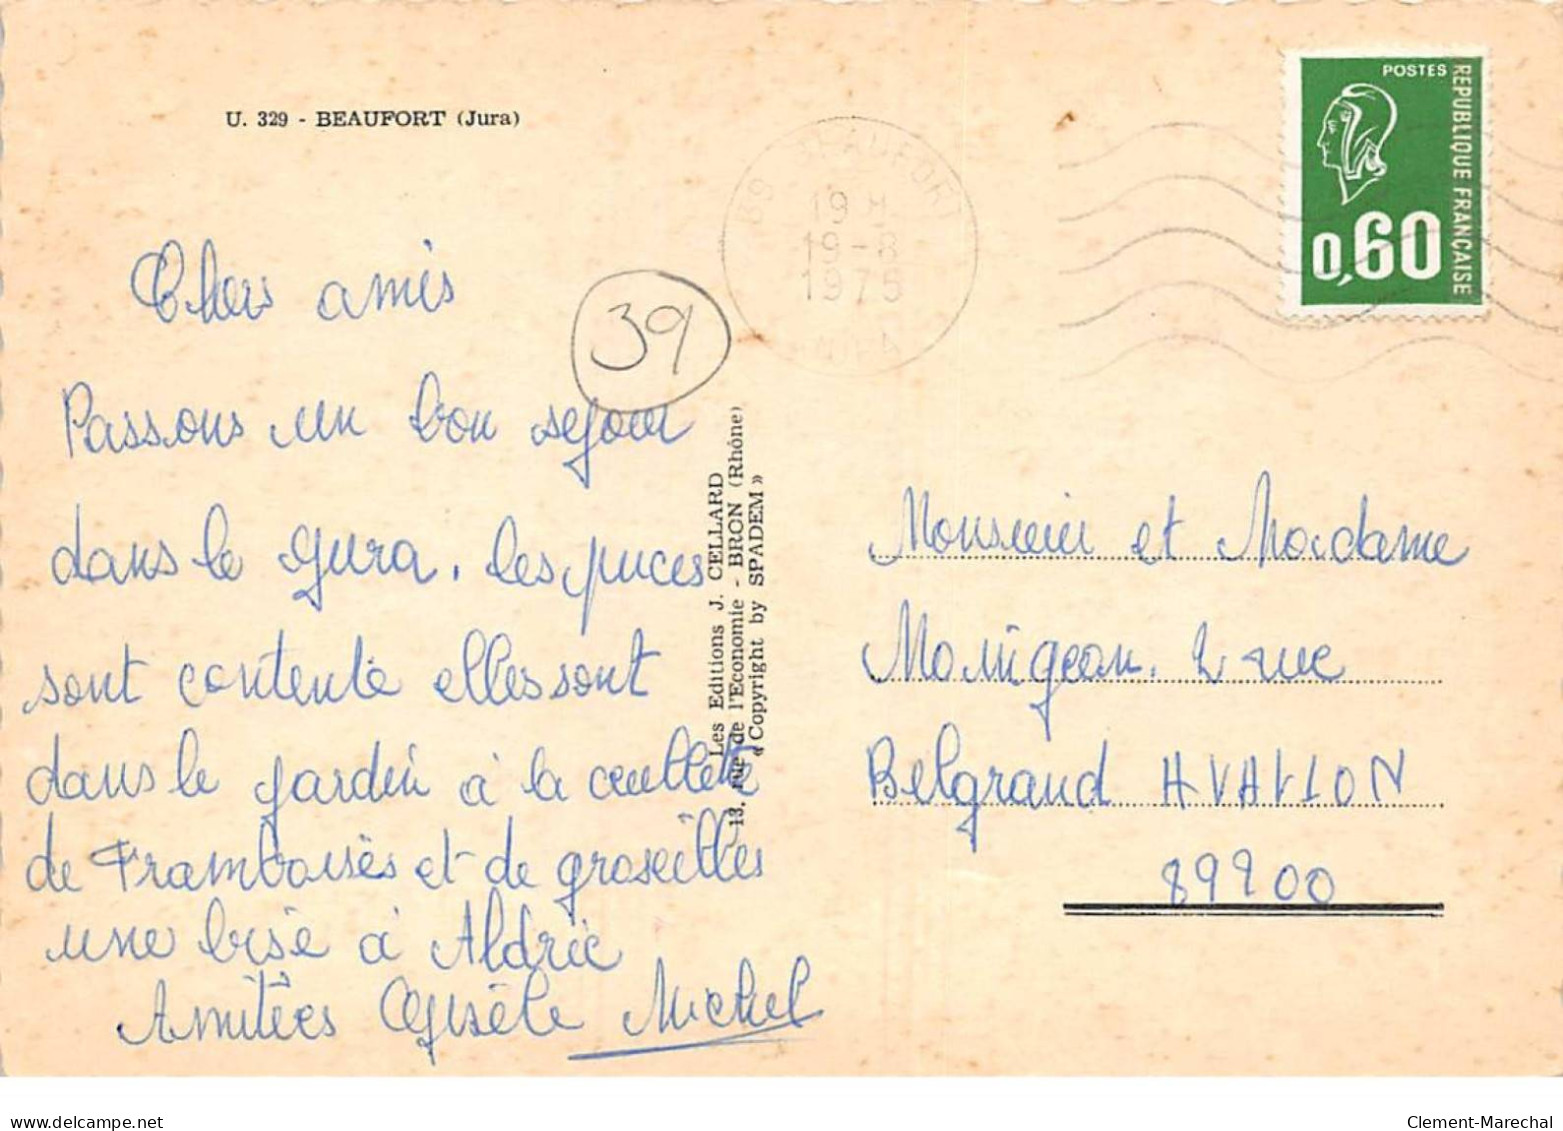 U. 329 - BEAUFORT (Jura)
POSTES
REPUBLIQUE FRANÇAISE
0,60
39 BEAUFORT
19 H
19-8
1975
JURA
39
Chers amis
Passons un bon sejour
dans le Jura. les puces
sont contente elles sont
dans le jardin à la ceullette
de Framboises et de groseilles
une bise à Aldric
Amitiées Gisèle Michel
Les Editions J. CELLARD
13, rue de l'Economie - BRON (Rhône)
« Copyright by SPADEM »
Monsieur et Madame
2 rue
Belgrand AVALLON
89200
Clement-Marechal